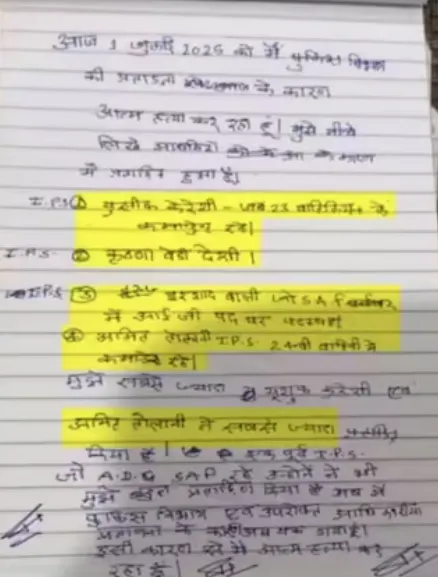 आज 1 जुलाई 2026 को मैं पुलिस विभाग
की प्रताड़ना के कारण
आत्म हत्या कर रहा हूँ। मुझे नीचे
लिखे
मैं प्रताड़ित हुआ है।
I.P.S ① युसूफ कुरैशी - जब 23 वाहिनी के
कमांडेंट रहे।
I.P.S. ② कृष्णा वेणी देसी।
I.P.S ③ इरशाद वाली जो SAF
में आई जी पद पर पदस्थ है
④ अमित तोलानी I.P.S. 24वी वाहिनी में
कमांडेंट रहे।
मुझे सबसे ज्यादा युसूफ कुरैशी एवं
अमित तोलानी ने सबसे ज्यादा प्रताड़ित
किया है। एक पूर्व I.P.S.
जो A.D.G SAF रहे उन्होंने ने भी
मुझे बहुत प्रताड़ित किया है अब मैं
पुलिस विभाग एवं उपरोक्त
प्रताड़ना के
इसी कारण से मैं आत्म हत्या कर
रहा हूँ।